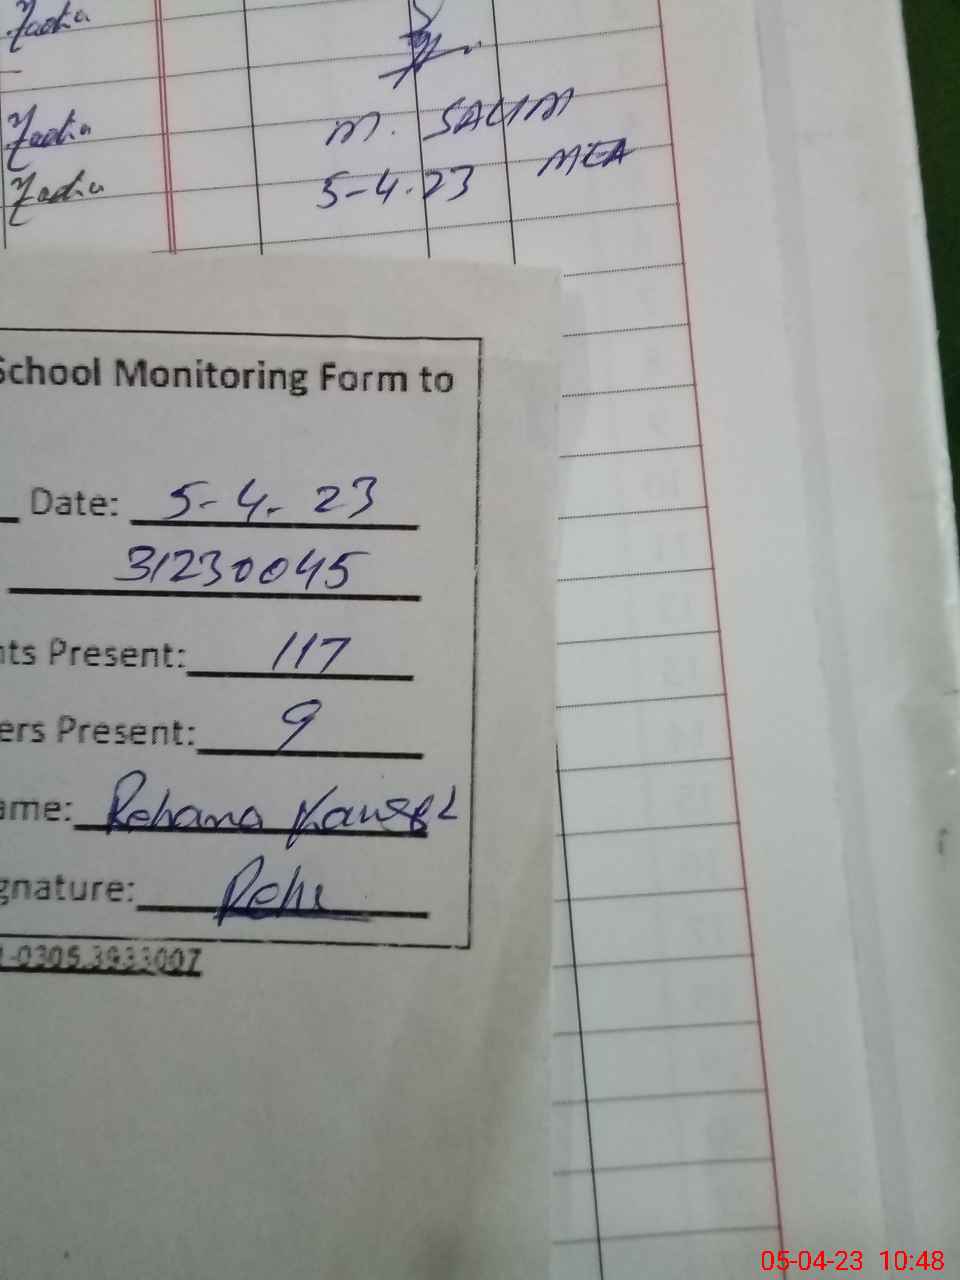 Zadia
Zadia
M. SALIM
Zadia
5-4.23 MEA
School Monitoring Form to
Date: 5-4. 23
31230045
nts Present: 117
ers Present: 9
ame: Rehana
gnature:
-0305.3933007
05-04-23 10:48